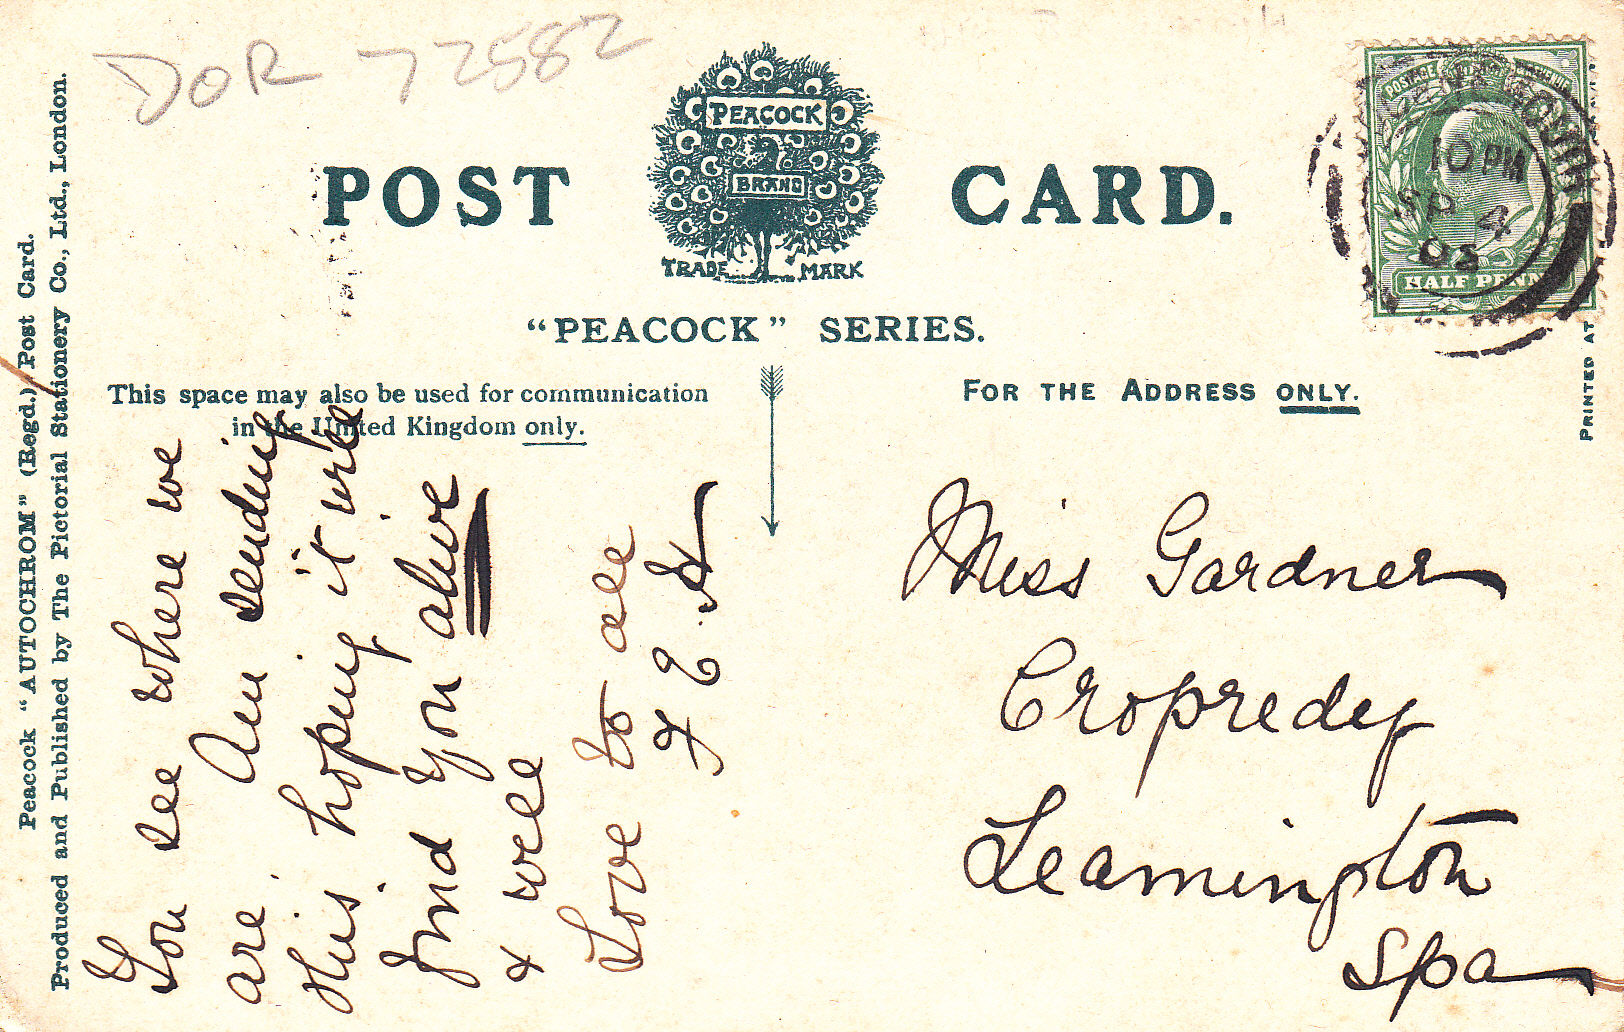 DOR 72582
PEACOCK
BRAND
TRADE MARK
POST CARD.
"PEACOCK" SERIES.
This space may also be used for communication
in the United Kingdom only.
FOR THE ADDRESS ONLY.
Peacock "AUTOCHROM" (Regd.) Post Card.
Produced and Published by The Pictorial Stationery Co., Ltd., London.
PRINTED AT
POSTAGE
HALF PENNY
10 PM
SP 4
You see where we
are. Am sending
this, hoping it will
find you alive
& well
Love to all
Miss Gardner
Cropredy
Leamington
Spa